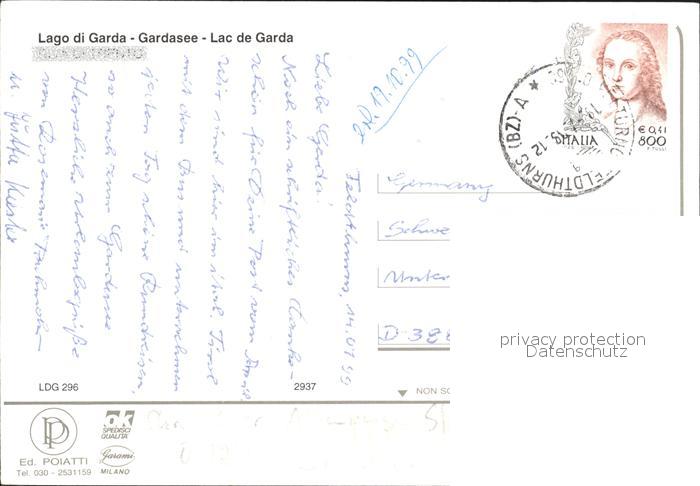 Lago di Garda - Gardasee - Lac de Garda
Feldthurns, 14.07.99
Liebe Gerda!
Noch ein schriftliches Danke-
schön für Deine Post vom
Wir sind hier im Südt. Tirol
mit dem Bus und unternehmen
jeden Tag schöne Rundreisen,
so auch zum Gardasee
Herzliche Urlaubsgrüße
von Rosemarie
u. Jutta
17.10.99
Germany
Schwe
Unter
D-38
ITALIA
€ 0,41
800
FELDTHURNS (BZ)-A
13-12
privacy protection
Datenschutz
LDG 296
2937
NON SC
PP
Ed. POIATTI
Tel. 030 - 2531159
OK
SPEDISCI
QUALITA'
Garami
MILANO